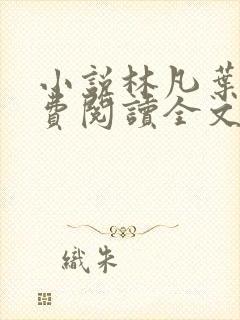 小說林凡葉
費閱讀全文
織朱